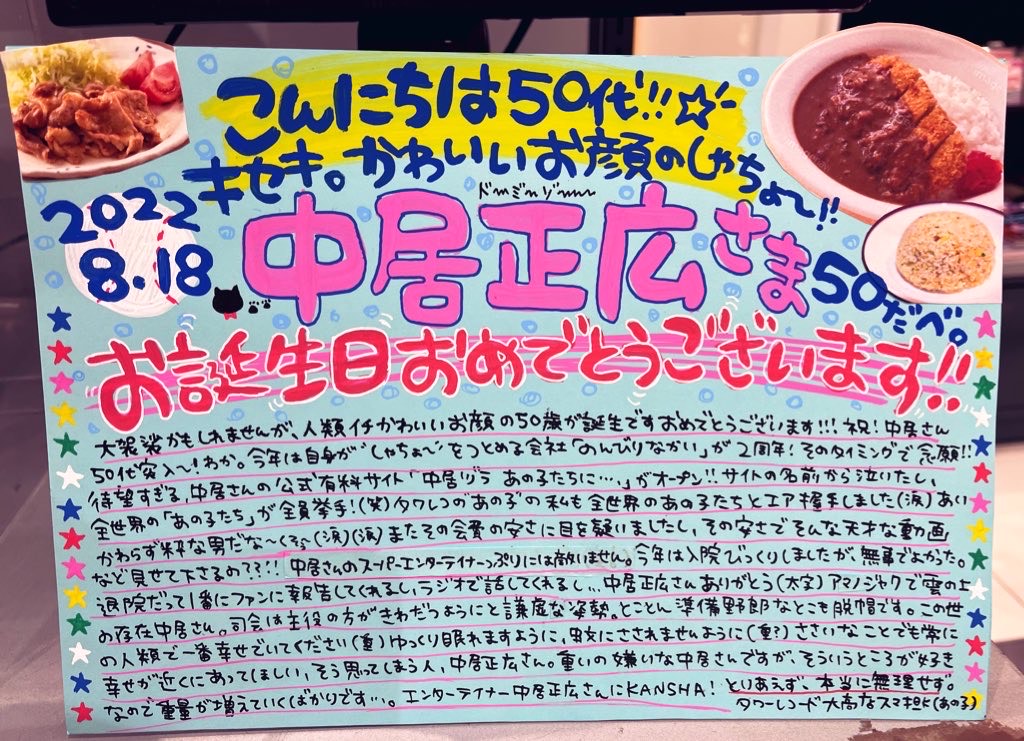 こんにちは50代!!☆
キセキ。かわいいお顔のしゃちょ〜!!
2022
8.18
ド〜ミ〜ソ〜
中居正広さま
50だべ。
お誕生日おめでとうございます!!
大袈裟かもしれませんが、人類イチかわいいお顔の50歳が誕生ですおめでとうございます!!!祝!中居さん
50代突入〜!わか。今年は自身が"しゃちょ〜"をつとめる会社「のんびりなかい」が2周年!そのタイミングで念願!!
待望すぎる、中居さんの公式有料サイト「中居ヅラ あの子たちに…」がオープン!!サイトの名前から泣いたし、
全世界の「あの子たち」が全員挙手!(笑)タワレコのあの子の私も全世界のあの子たちとエア握手しました(涙)あい
かわらず粋な男だな〜くぅぅ(涙)(涙)またその会費の安さに目を疑いましたし、その安さでそんな天才な動画
など見せて下さるの??!!中居さんのスーパーエンターテイナーっぷりには敵いません。今年は入院びっくりしましたが、無事でよかった。
退院だって1番にファンに報告してくれるし、ラジオで話してくれるし…中居正広さんありがとう(太字)アマノジャクで雲の上
の存在中居さん。司会は主役の方がきわだつようにと謙虚な姿勢。とことん準備野郎なとこも脱帽です。この世
の人類で一番幸せでいてください(重)ゆっくり眠れますように、蚊にさされませんように(重?)ささいなことでも常に
幸せが近くにあってほしい、そう思ってしまう人、中居正広さん。重いの嫌いな中居さんですが、そういうところが好き
なので重量が増えていくばかりです…。エンターテイナー中居正広さんにKANSHA!とりあえず、本当に無理せず。
タワーレコード大高なスマ担より(あの子)